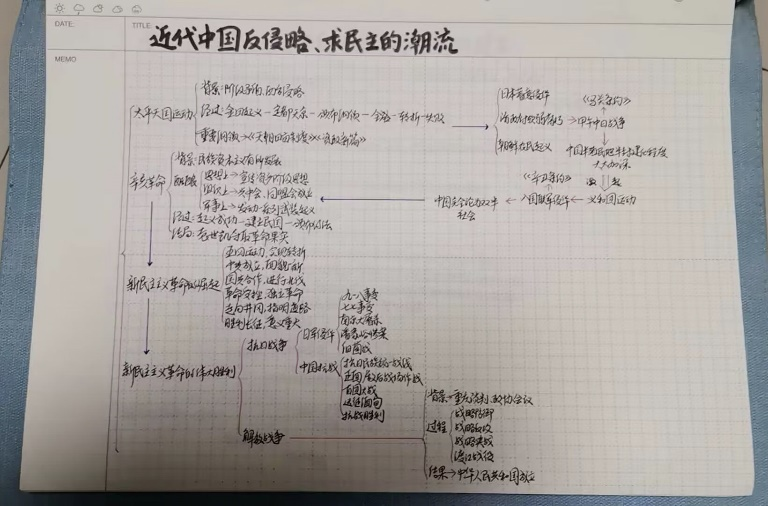 DATE:
TITLE: 近代中国反侵略、求民主的潮流
MEMO
太平天国运动
背景:阶级矛盾,西方侵略
过程:金田起义—定都天京—颁布纲领—全盛—转折—失败
重要纲领→《天朝田亩制度》《资政新篇》
日本蓄意侵华
朝鲜农民起义
甲午中日战争
《马关条约》
中国半殖民地半封建化程度
大大加深
义和团运动
八国联军侵华
《辛丑条约》
中国完全沦为双半
社会
辛亥革命
背景:民族资本主义有所发展
思想上→宣传资产阶级思想
组织上→兴中会、同盟会成立
军事上→发动一系列武装起义
过程:起义成功—建立民国—颁布约法
结局:袁世凯窃取革命果实
新民主主义革命的崛起
五四运动,
中共成立,
国共合作,进行北伐
走向井冈,
胜利长征,意义重大
新民主主义革命的伟大胜利
抗日战争
日军侵华
九一八事变
七七事变
南京大屠杀
潘家峪惨案
细菌战
中国抗战
抗日民族统一战线
正面、敌后战场作战
百团大战
抗战胜利
解放战争
背景→重庆谈判、政协会议
过程
战略防御
战略反攻
战略决战
渡江战役
结果→中华人民共和国成立